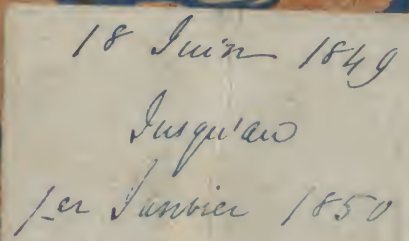 18 Juin 1849
Jusqu'au
1er Janvier 1850